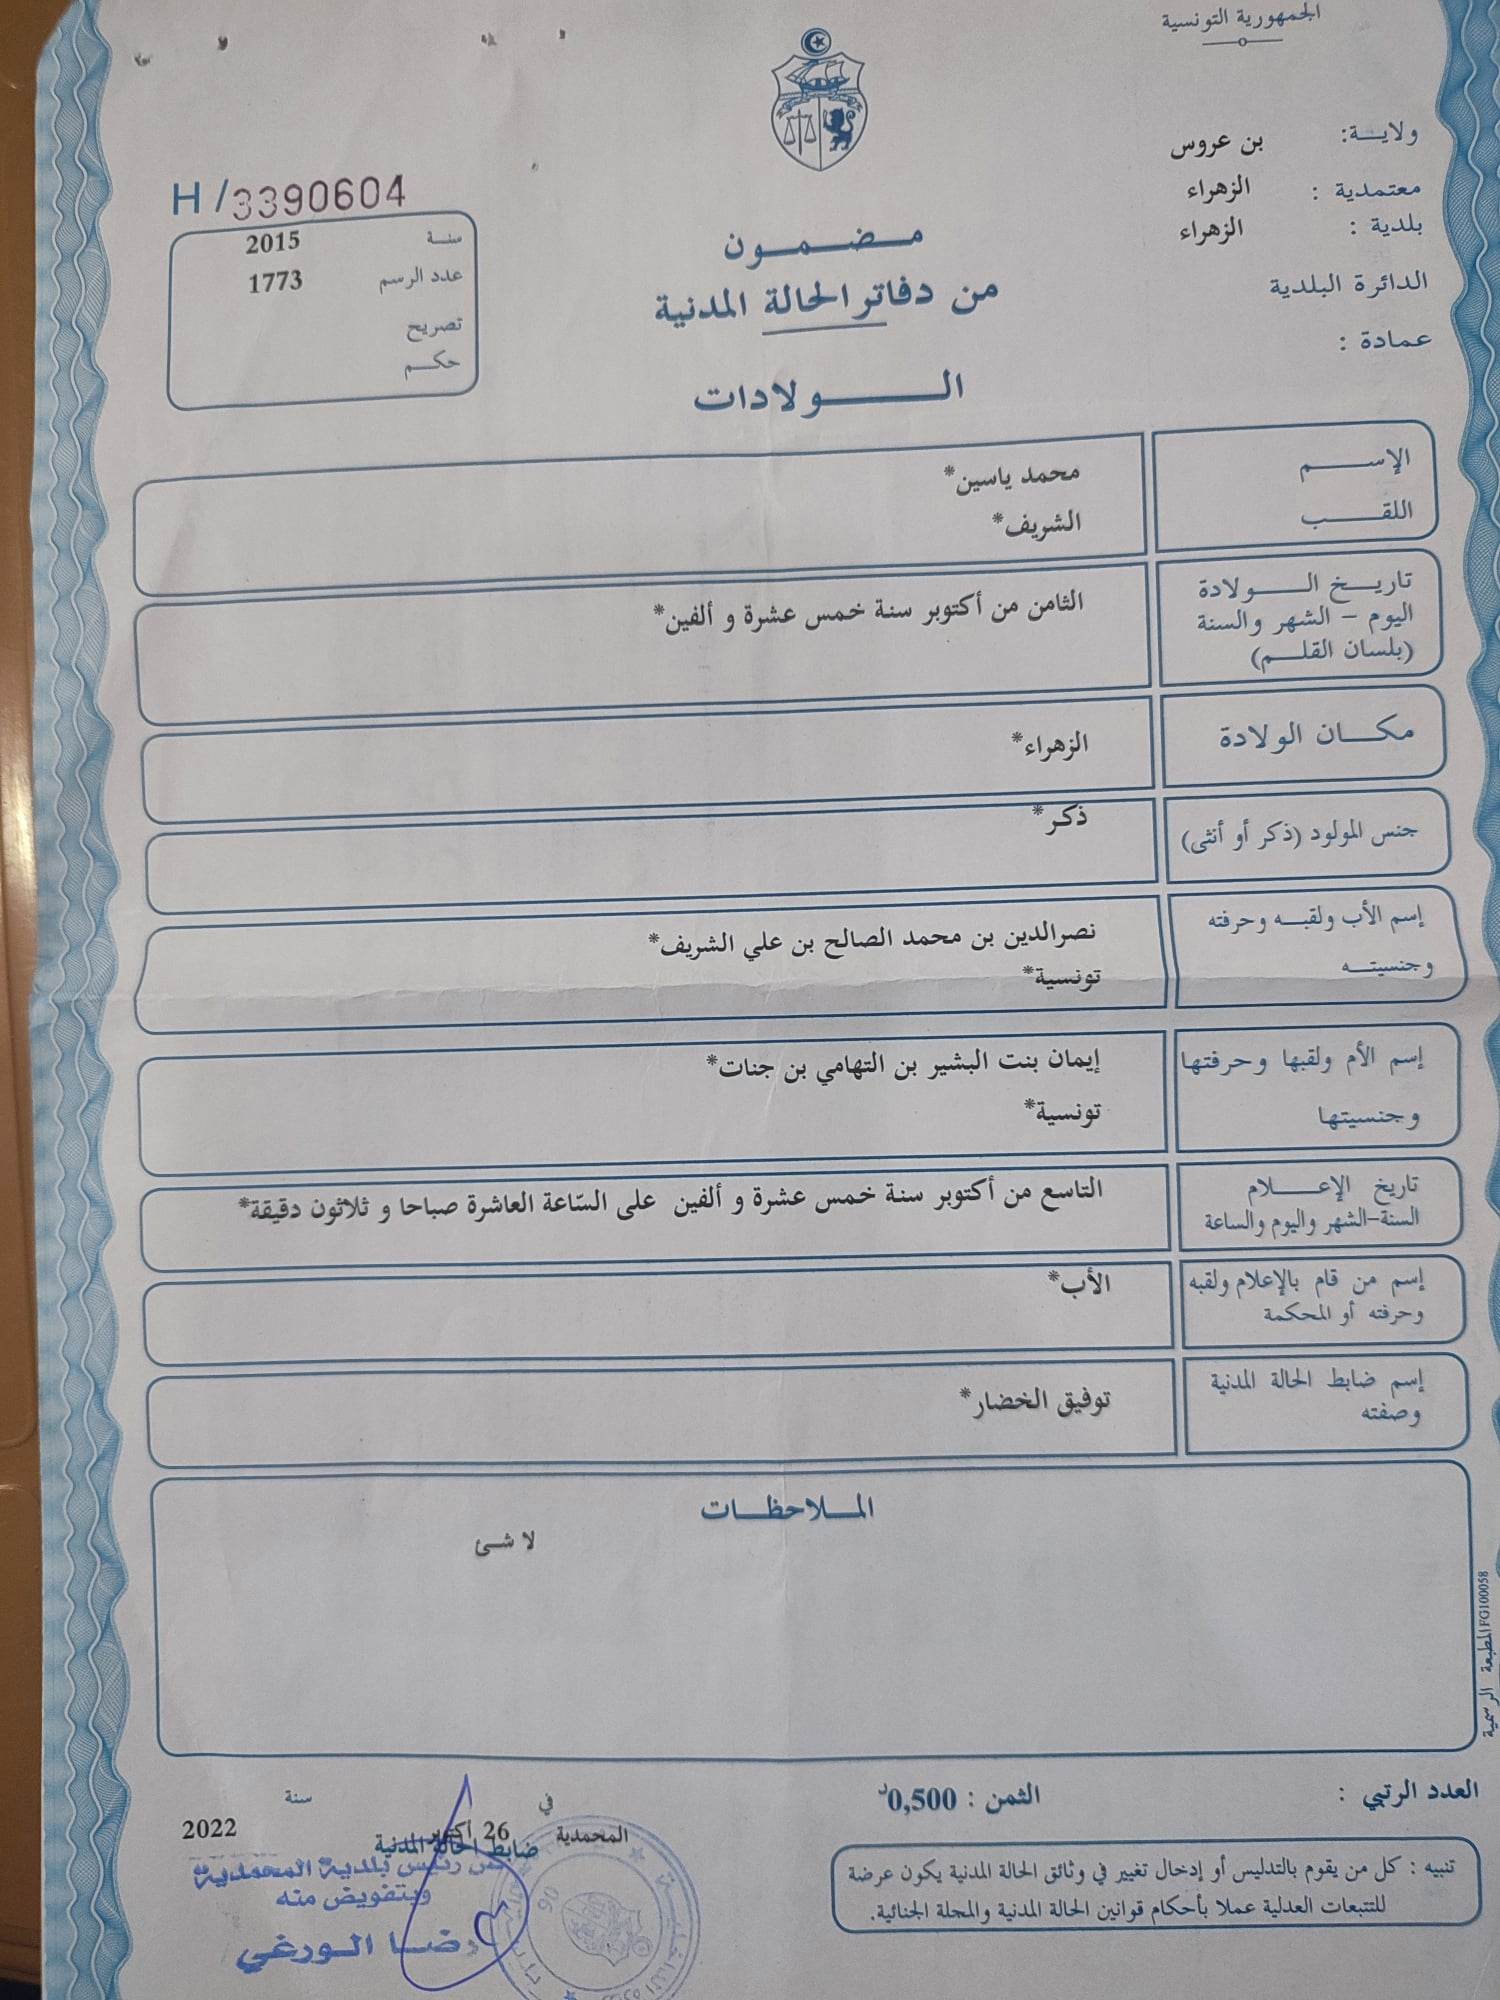 الجمهورية التونسية
ولاية: بن عروس
معتمدية : الزهراء
بلدية : الزهراء
الدائرة البلدية
عمادة :
H/3390604
سنة 2015
عدد الرسم 1773
تصريح
حكم
مضمون
من دفاتر الحالة المدنية
الولادات
الإسم محمد ياسين*
اللقب الشريف*
تاريخ الولادة
اليوم - الشهر والسنة
(بلسان القلم)
الثامن من أكتوبر سنة خمس عشرة و ألفين*
مكان الولادة الزهراء*
جنس المولود (ذكر أو أنثى) ذكر*
إسم الأب ولقبه وحرفته
وجنسيته
نصرالدين بن محمد الصالح بن علي الشريف*
تونسية*
إسم الأم ولقبها وحرفتها
وجنسيتها
إيمان بنت البشير بن التهامي بن جنات*
تونسية*
تاريخ الإعلام
السنة-الشهر واليوم والساعة
التاسع من أكتوبر سنة خمس عشرة و ألفين على السّاعة العاشرة صباحا و ثلاثون دقيقة*
إسم من قام بالإعلام ولقبه
وحرفته أو المحكمة
الأب*
إسم ضابط الحالة المدنية
وصفته
توفيق الخضار*
الملاحظات
لا شئ
المطبعة الرسمية FG100058
العدد الرتبي :
الثمن : 0,500د
في سنة
المحمدية 26 أكتوبر 2022
ضابط الحالة المدنية
عن رئيس بلدية المحمدية
وبتفويض منه
رضا الورغي
تنبيه : كل من يقوم بالتدليس أو إدخال تغيير في وثائق الحالة المدنية يكون عرضة
للتتبعات العدلية عملا بأحكام قوانين الحالة المدنية والمجلة الجنائية.